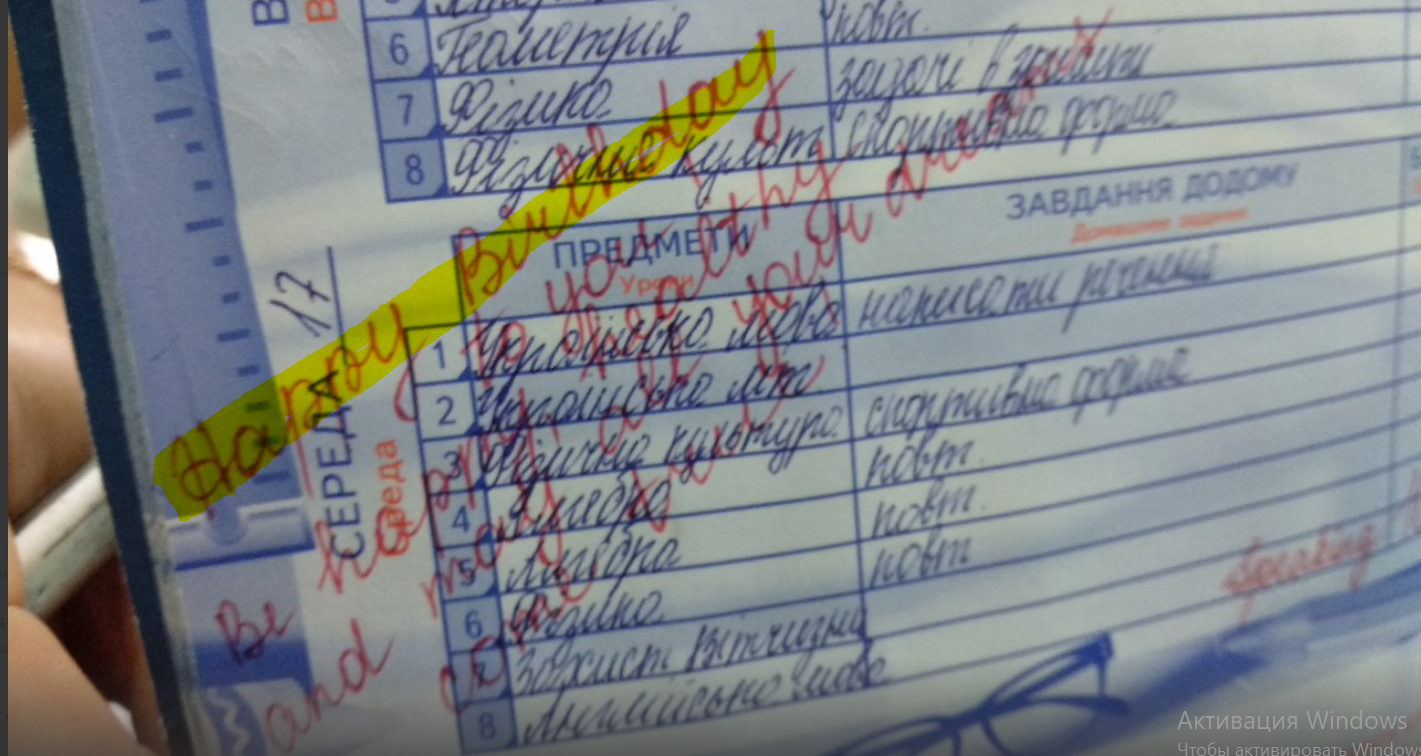 6 Геометрія повт.
7 Фізика задачі в зошиті
8 Фізична культ спортивна форма
СЕРЕДА 17
Среда
ПРЕДМЕТИ ЗАВДАННЯ ДОДОМУ
Уроки Домашнее задание
1 Українська мова написати речення
2 Українська літ
3 Фізична культура спортивна форма
4 Алгебра повт.
5 Алгебра повт.
6 Фізика повт
7 Захист Вітчизни
8 Англійська мова
Happy Birthday
to you
Be happy, healthy
and may all your dreams
come true
Speaking
Активация Windows
Чтобы активировать Windows